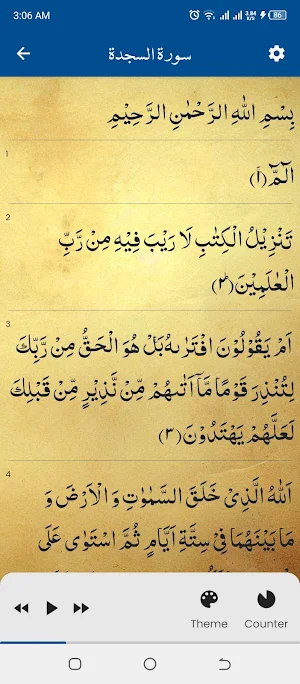 3:06 AM
2.84 KB/S 86
سورة السجدة
بِسْمِ اللّٰهِ الرَّحْمٰنِ الرَّحِيْمِ
1
الٓمّٓ (١)
2
تَنْزِيْلُ الْكِتٰبِ لَا رَيْبَ فِيْهِ مِنْ رَّبِّ
الْعٰلَمِيْنَ (٢)
3
اَمْ يَقُوْلُوْنَ افْتَرٰىهُ بَلْ هُوَ الْحَقُّ مِنْ رَّبِّكَ
لِتُنْذِرَ قَوْمًا مَّاۤ اَتٰىهُمْ مِّنْ نَّذِيْرٍ مِّنْ قَبْلِكَ
لَعَلَّهُمْ يَهْتَدُوْنَ (٣)
4
اَللّٰهُ الَّذِيْ خَلَقَ السَّمٰوٰتِ وَ الْاَرْضَ وَ
مَا بَيْنَهُمَا فِيْ سِتَّةِ اَيَّامٍ ثُمَّ اسْتَوٰى عَلَى
Theme Counter